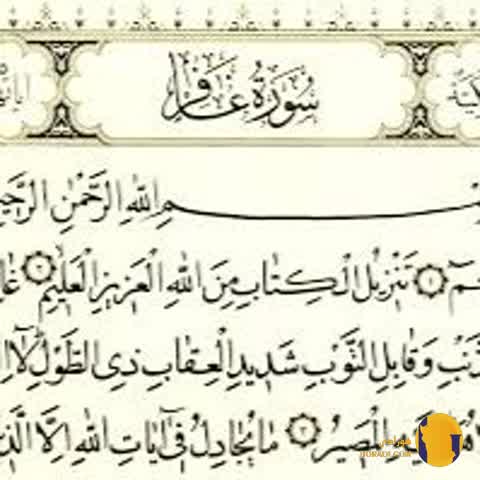 سُورَةُ غَافِر
اللهِ الرَّحْمٰنِ
تَنْزِيلُ الْكِتَابِ مِنَ اللهِ الْعَزِيزِ الْعَلِيمِ ﴿٢﴾
وَقَابِلِ التَّوْبِ شَدِيدِ الْعِقَابِ ذِى الطَّوْلِ لَا
الْمَصِيرُ ﴿٣﴾ مَا يُجَادِلُ فِى آيَاتِ اللهِ اِلَّا